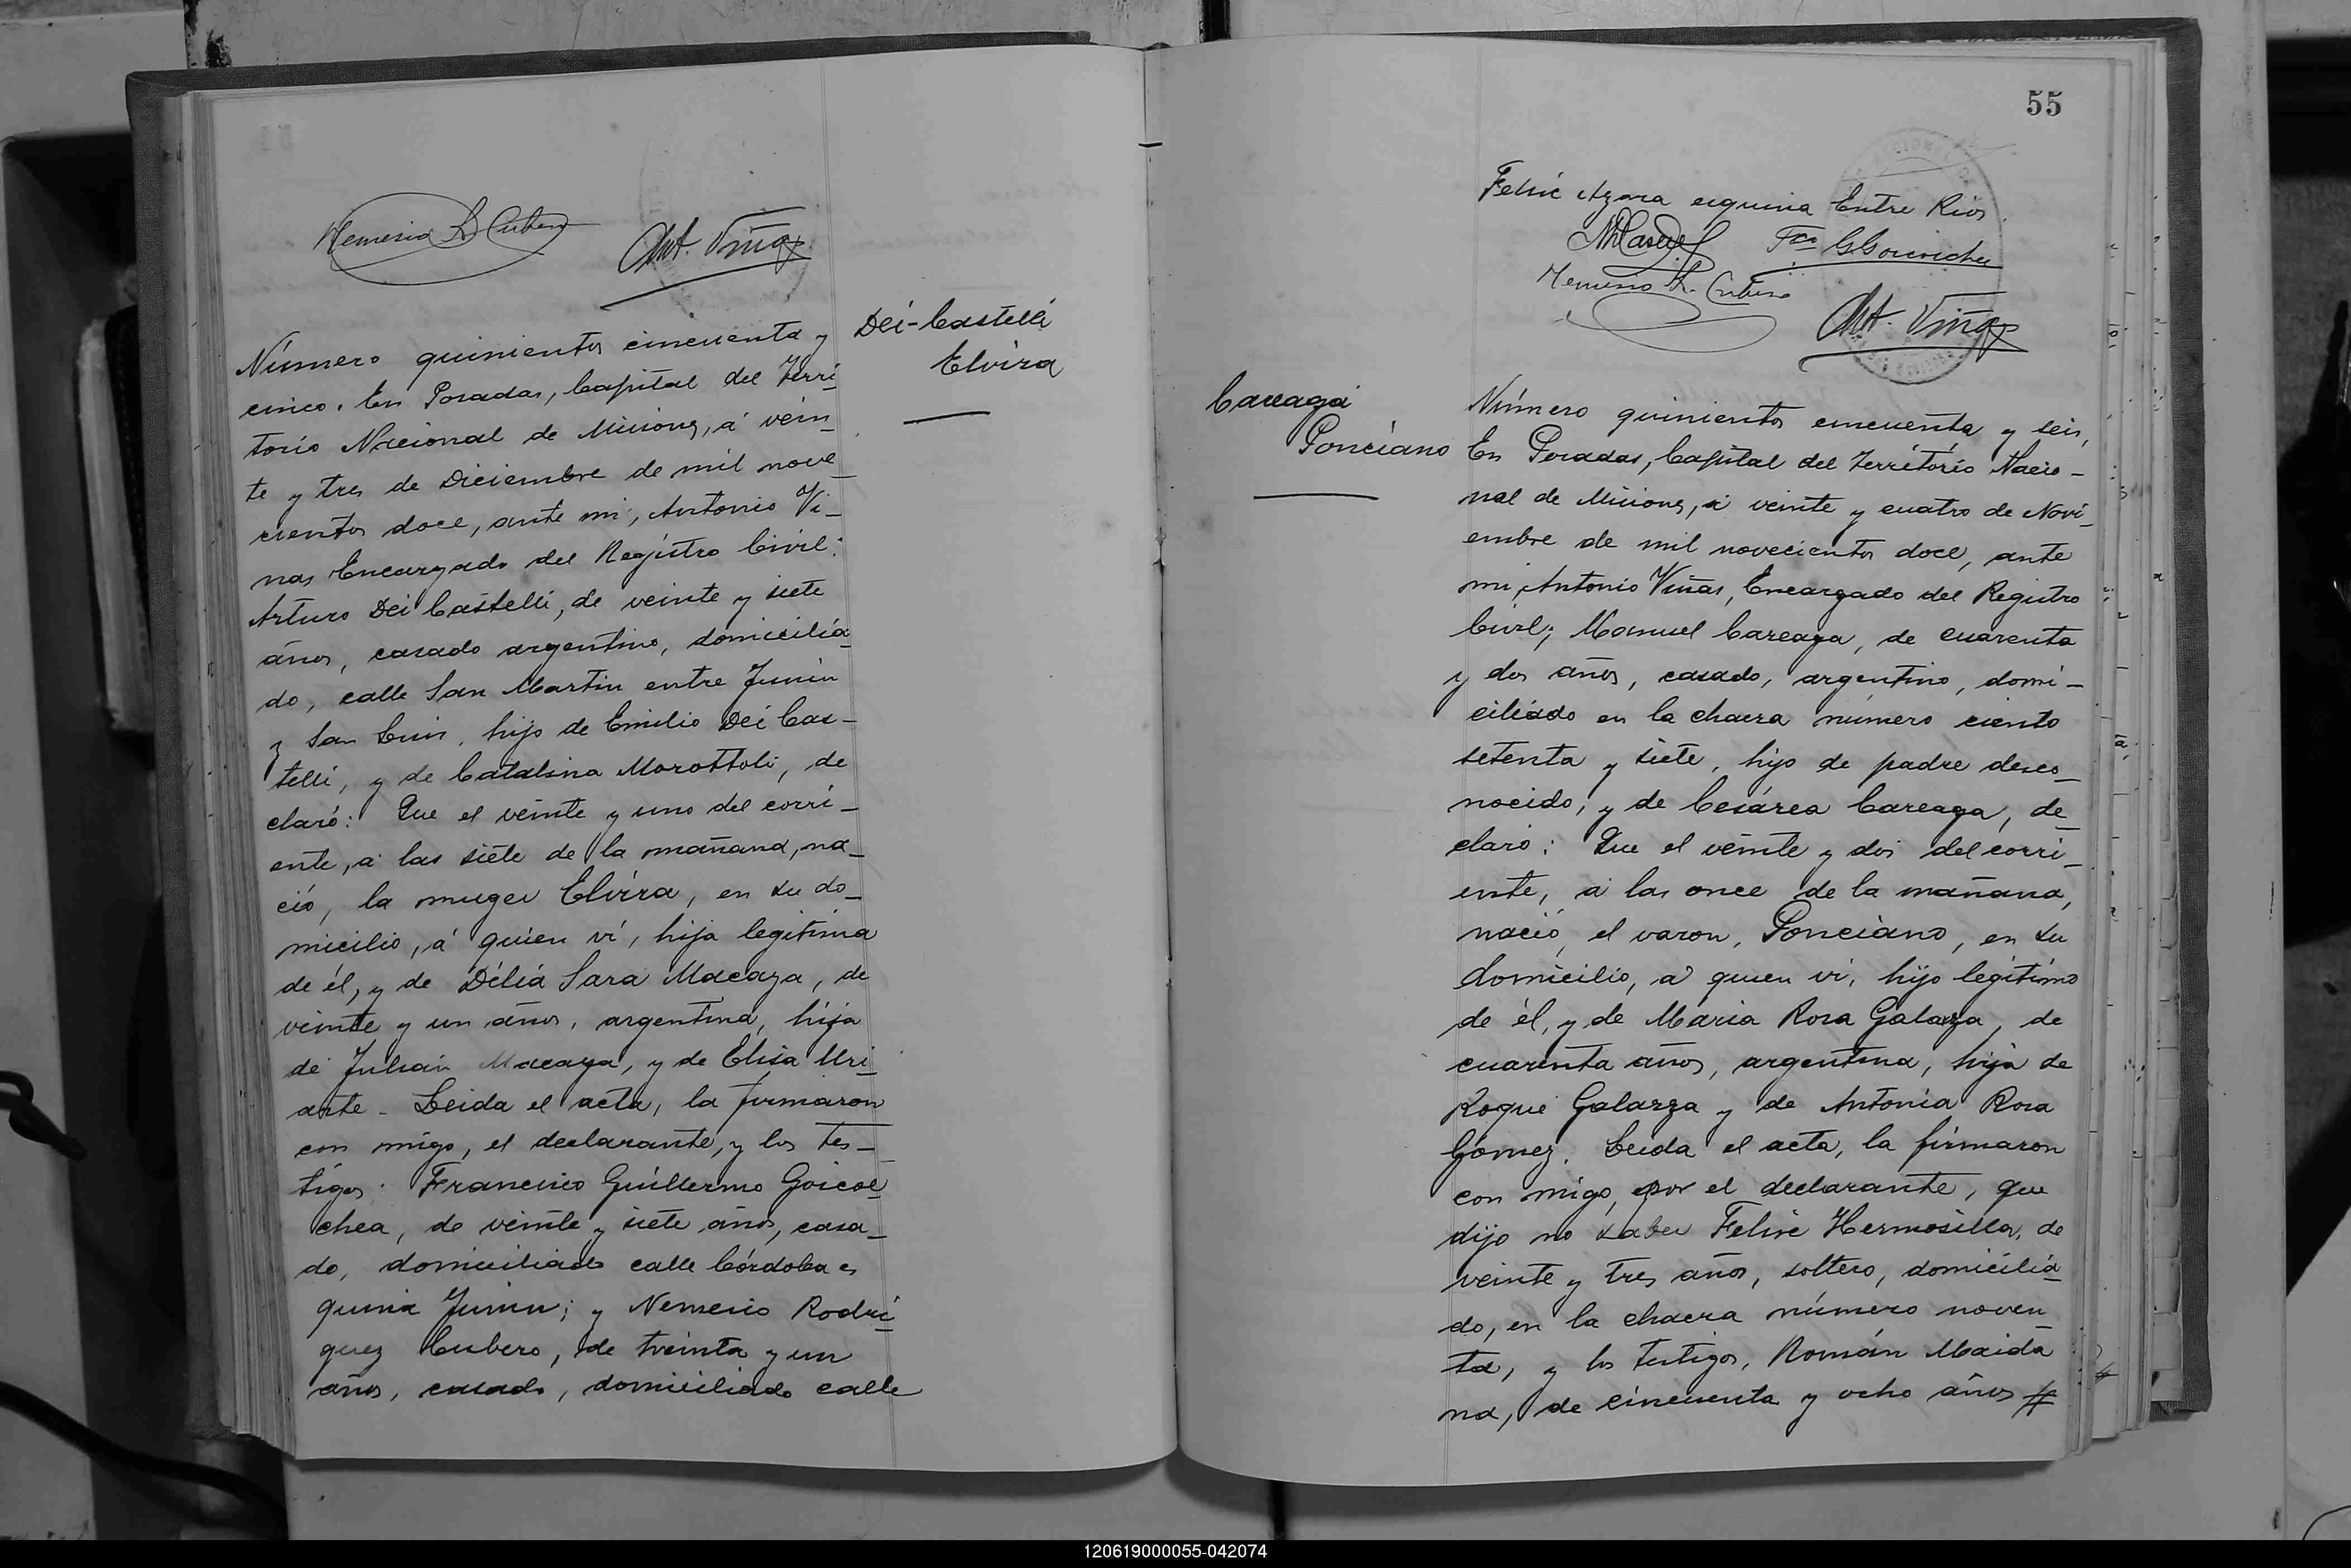 Nemesio R. Cubero
Ant. Viñas
Dei-Castelli
Elvira
Número quinientos cincuenta y
cinco. En Posadas, Capital del Terri_
torio Nacional de Misiones, á vein_
te y tres de Diciembre de mil nove_
cientos doce, ante mi, Antonio Vi_
ñas Encargado del Registro Civil:
Arturo Dei Castelli, de veinte y siete
años, casado argentino, domicilia_
do, calle San Martin entre Junin
y San Luis, hijo de Emilio Dei Cas_
telli, y de Catalina Morottoli, de
claró: Que el veinte y uno del corri_
ente, á las siete de la mañana, na_
ció, la muger Elvira, en su do_
micilio, á quien ví, hija legitima
de él, y de Délia Sara Macaya, de
veinte y un años, argentina, hija
de Julián Macaya, y de Elisa Uri_
arte - Leida el acta, la firmaron
con migo, el declarante, y los tes_
tigos: Francisco Guillermo Goicoe_
chea, de veinte y siete años, casa_
do, domiciliado calle Córdoba es
quina Junin; y Nemesio Rodri_
guez Cubero, de treinta y un
años, casado, domiciliado calle
55
Felix Azara esquina Entre Rios.
Fco G. Goicoechea
Nemesio R. Cubero
Ant. Viñas
Careaga
Ponciano
Número quinientos cincuenta y seis,
En Posadas, Capital del Territorio Nacio_
nal de Misiones, á veinte y cuatro de Novi_
embre de mil novecientos doce, ante
mi, Antonio Viñas, Encargado del Registro
Civil; Manuel Careaga, de cuarenta
y dos años, casado, argentino, domi_
ciliado en la chacra número ciento
setenta y siete, hijo de padre desco_
nocido, y de Cesárea Careaga, de_
claró: Que el veinte y dos del corri_
ente, á las once de la mañana,
nació, el varon, Ponciano, en su
domicilio, a quien vi, hijo legítimo
de él, y de Maria Rosa Galarza, de
cuarenta años, argentina, hija de
Roque Galarza y de Antonia Rosa
Gómez. Leida el acta, la firmaron
con migo, por el declarante, que
dijo no saber Felise Hermosilla, de
veinte y tres años, soltero, domicilia_
do, en la chacra número noven_
ta, y los testigos, Román Maida
na, de cincuenta y ocho años #
120619000055-042074